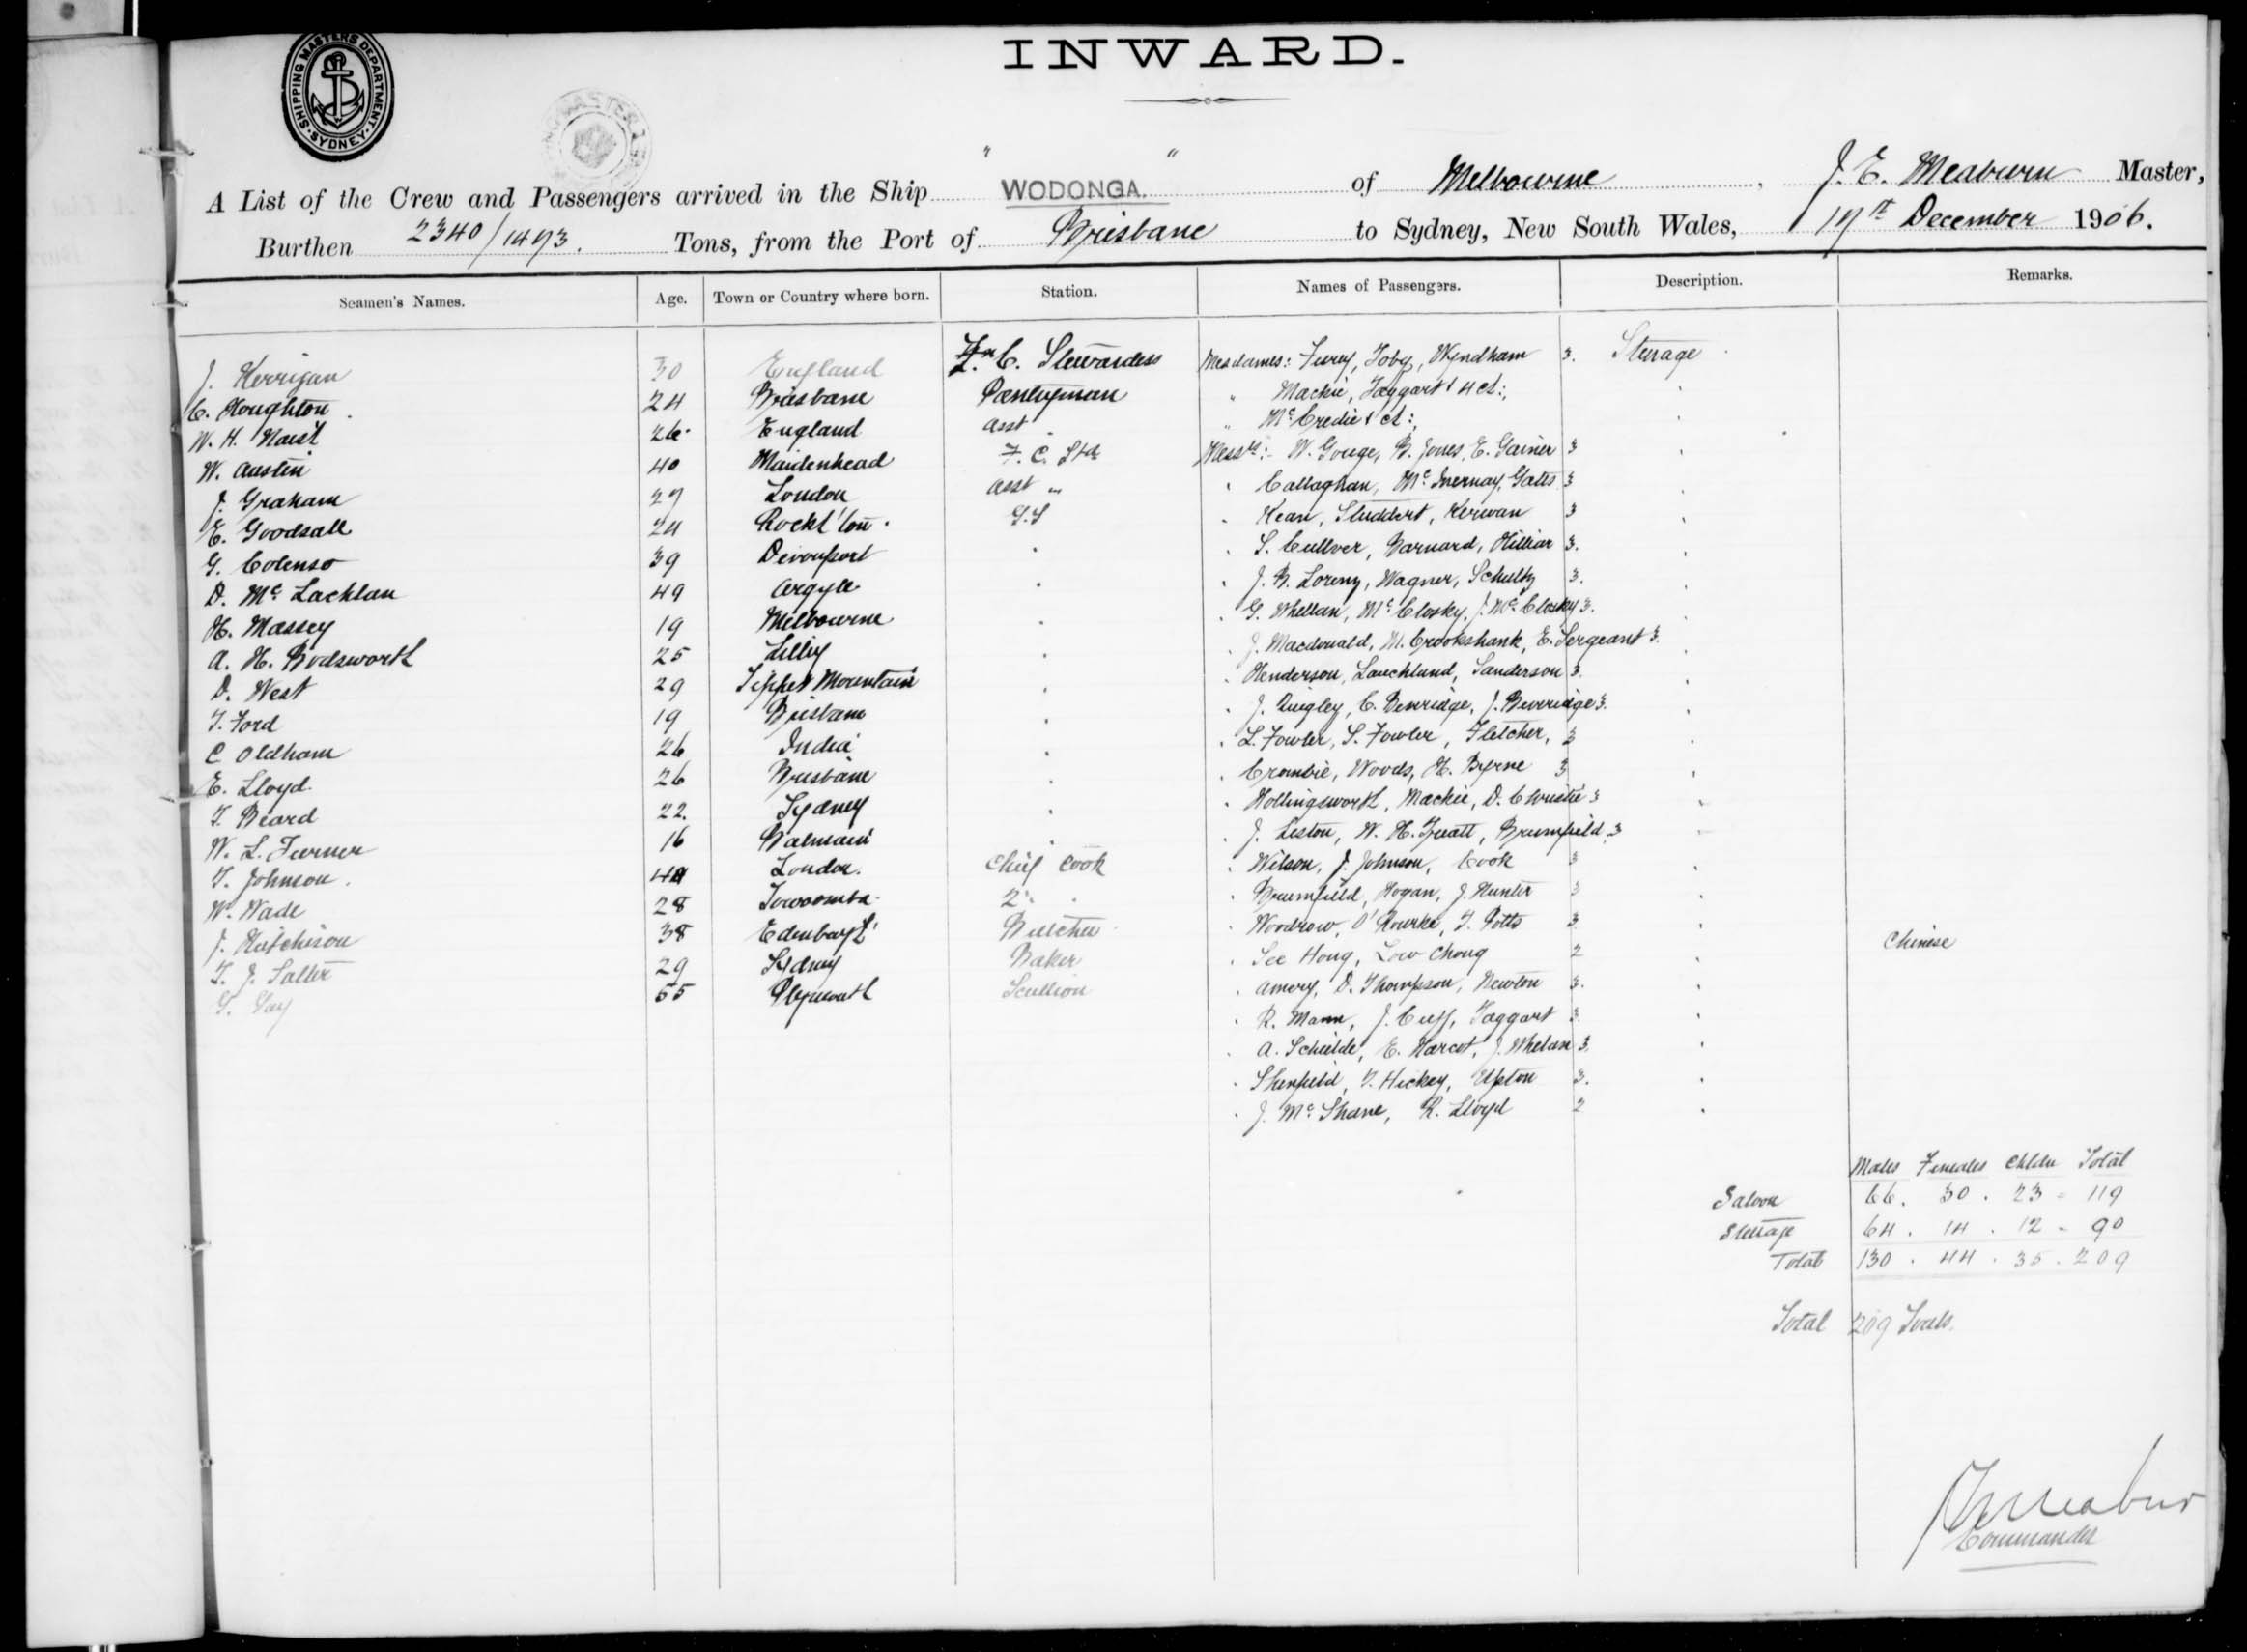 INWARD.
SHIPPING MASTERS DEPARTMENT SYDNEY
A List of the Crew and Passengers arrived in the Ship " WODONGA. " of Melbourne, J. E. Meaburn Master,
Burthen 2340/1493. Tons, from the Port of Brisbane to Sydney, New South Wales, 17th December 1906.
Seamen's Names. Age. Town or Country where born. Station. Names of Passengers. Description. Remarks.
J. Kerrigan 30 England F. C. Stewardess Mesdames: Furey, Toby, Wyndham 3. Steerage
C. Houghton 24 Brisbane Pantryman " Mackie, Taggart & 4 ch:,
W. H. Naish 26 England Asst " " McCredie & ch:,
W. Austin 40 Maidenhead F. C. Std Messrs:- W. Gouge, B. Jones, E. Gainer 3
J. Graham 27 London Asst " " Callaghan, McInernay, Gates 3
E. Goodsall 24 Rockh'ton. G.S " Kean, Studdert, Kerwan 3
G. Colenso 39 Devonport " " S. Cullver, Barnard, Hilliar 3.
D. McLachlan 49 Argyle " " J. B. Lorenz, Wagner, Schultz 3.
H. Massey 19 Melbourne " " G. Whellan, McClosky, J. McClosky 3.
A. H. Bodsworth 25 Lilley " " J. Macdonald, M. Crookshank, E. Sergeant 3.
D. West 29 Tipper Mountain " " Henderson, Lauchland, Sanderson 3.
T. Ford 19 Brisbane " " J. Quigley, C. Beveridge, J. Beveridge 3.
C Oldham 26 India " " L. Fowler, S. Fowler, Fletcher, 3
E. Lloyd. 26 Brisbane " " Crombie, Woods, H. Byrne 3
T. Beard 22. Sydney " " Hollingsworth, Mackie, D. Christie 3
W. L. Turner 16 Balmain " " J. Liston, W. H. Treatt, Brumfield, 3
T. Johnson. London. Chief Cook " Wilson, J. Johnson, Cook 3
W. Wade 28 Towoomba 2" " " Brumfield, Hogan, J. Hunter 3
J. Hutchison 38 Edenburgh Butcher " Woodrow, O'Rourke, T. Potts 3
T. J. Salter 29 Sydney Baker " See Hong, Low Chong 2 " Chinese
T. Gay 55 Plymouth Scullion " Amory, D. Thompson, Newton 3.
" R. Mann, J. Cuff, Taggart 3.
" A. Schielde, E. Harcot, J. Whelan 3.
" Shenfield, T. Hickey, Upton 3.
" J. McShane, R. Lloyd 2
Males Females Chldn Total
Saloon 66. 30. 23 = 119
Steerage 64. 14. 12 - 90
Total 130. 44. 35. 209
Total 209 Souls.
J. E. Meaburn
Commander